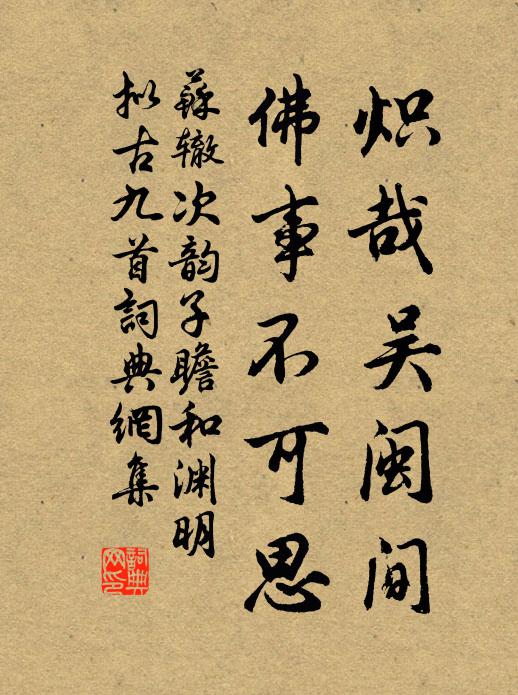 炽哉吴闽间
佛事不可思
蘇辙次韵子瞻和渊明
拟古九首詞典網集
詞典
网印